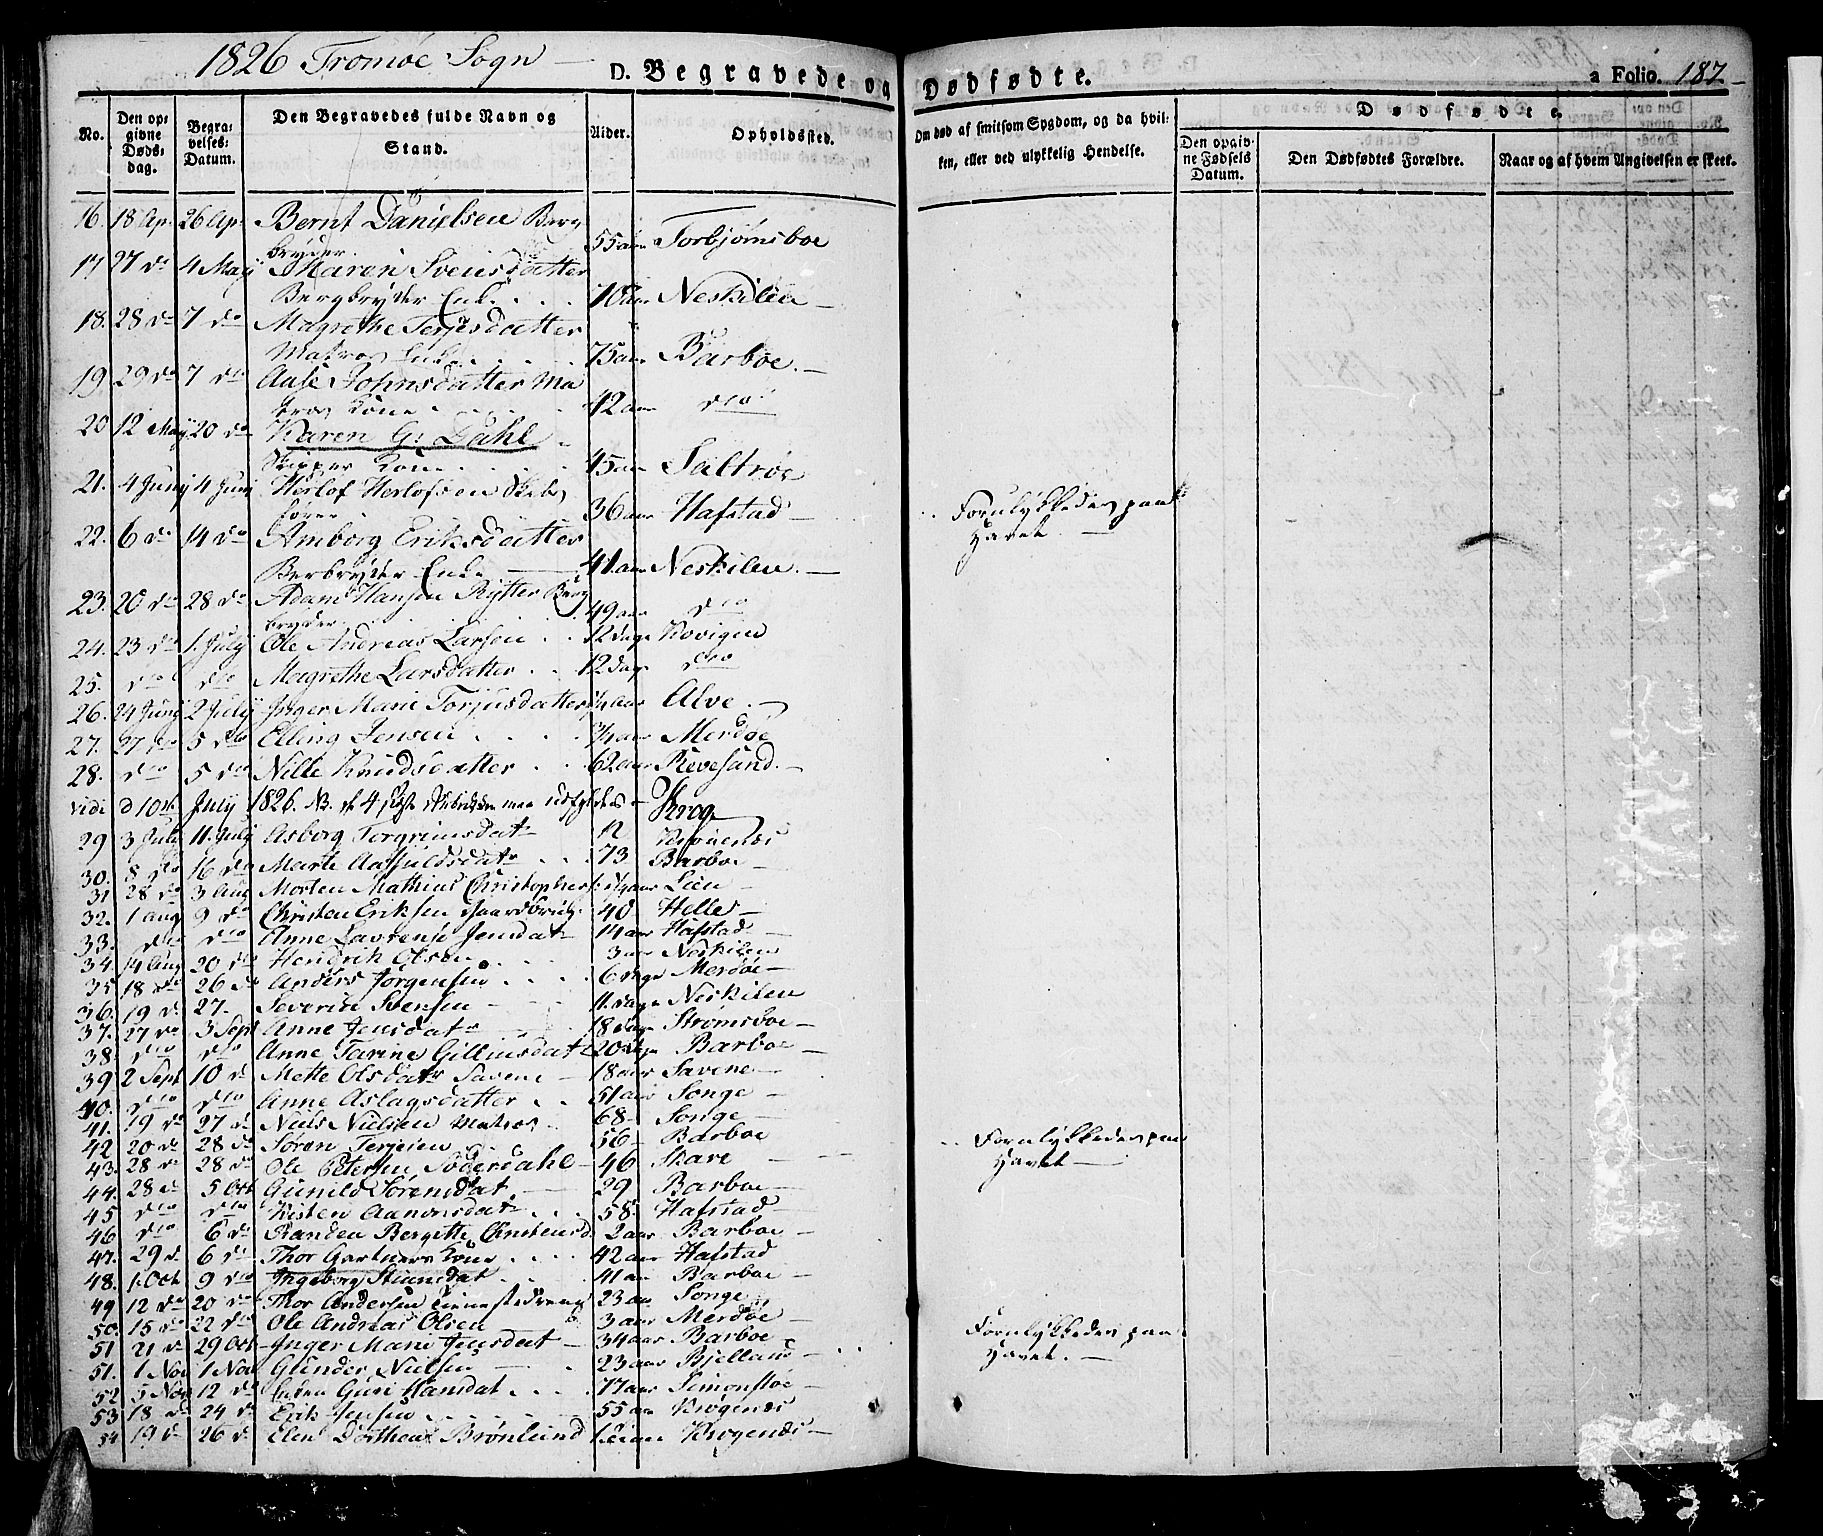 1826 Tromøe Sogn
D. Begravede og Dødfødte.
a Folio. 187
No. Den opgivne Dødsdag. Begravelses-Datum. Den Begravedes fulde Navn og Stand. Alder. Opholdssted. Om død af smitsom Sygdom, og da hvilken, eller ved ulykkelig Hendelse. Dødfødte. Den opgivne Fødsels Datum. Den Dødfødtes Forældre. Naar og af hvem Angivelsen er skeet.
16. 18 Ap. 26 Ap. Bernt Danielsen Berg
bryder. 55 aar Torbjørnsboe
17 27 do 4 May Maren Svensdatter
Bergbryder Enke 70 aar Neskilen
18. 28 do 7 do Magrethe Terjesdatter
Matros Enke 75 aar Barboe.
19. 29 do 7 do Aase Johnsdatter Ma
tros Kone 42 aar do
20 12 May 20 do Karen G: Dahl
Skipper Kone 45 aar Saltrøe
21. 4 Juny 4 Juni Herlof Herlofsen Skibs
fører 36 aar Hafstad Forulykkedes paa
Havet.
22. 6 do 14 do Amborg Eriksdatter
Berbryder Enke 41 aar Neskilen.
23. 20 do 28 do Adam Hansen Rytter Berg
bryder. 49 aar do
24. 23 do 1 July Ole Andreas Larsen 12 dage Kovigen
25. do do Magrethe Larsdatter 12 dage do
26. 24 Juny 2 July Inger Marie Torjusdatter aar Alve
27. 27 do 5 do Elling Jensen 3/4 aar Merdøe
28. do 5 do Nille Knudsdatter 62 aar Revesand.
Vidi d 10de July 1826. NB. de 4 maa udfyldes Krog
29 3 July 11. July Asborg Torgrimsdatr 12
30. 8 do 16 do Marte datr 73 Barboe
31 28 do 3 Aug Morten Mathias Christophers: aar Lien
32. 1 aug 9 do Christen Eriksen 40 Helle
33. do do Anne Lavrense Jensdatr 14 aar Hafstad
34. 14 Aug 20 do Hendrik Olsen 3 aar Neskilen
35 18 do 26 do Anders Jørgensen 6 dage Merdøe
36. 19 do 27. Severin Svensen 11 dage Neskilen
37. 27 do 3 Sept Anne Jensdatr 18 dage Strømsboe
38. do do Anne Tarine datr 20 dage Barboe
39 2 Sept 10 do Mette Olsdatr Savene 18 aar Savene
40. do do Anne Aslagsdatter 51 aar Songe
41. 19 do 27 do Niels Nielsen Matros 68 Songe
42 20 do 28 do Søren Terjesen 56 Barboe Forulykkedes paa
43. 28 do 28 do Ole Petersen Søderdahl 46 Skare Havet
44. 28 do 5 Oct Gunild Sørensdatr 29 Barboe
45 do do Kisten Aanonsdatr 58 Hafstad
46 do 6 do Randen Bergitte Christensd 2 aar Barboe
47. 29 do 6 do Thor Gartners Kone 42 aar Hafstad
48. 1. Oct 9 do Ingeborg datr 41 aar Barboe
49 12 do 20 do Thor Andersen Tienestedreng 23 aar Songe
50. 15 do 22 do Ole Andreas Olsen 3 aar Merdøe Forulykkedes paa
51 21 do 29 Oct Inger Marie Jensdatr 34 aar Barboe Havet.
51. 1 Nov 1 Nov Gunder Nielsen 23 aar Bjelland
52 5 Nov 12 do Enken Guri Hansdat 77 aar Simonstoe
53 18 do 24 do Erik Jensen 55 aar Krøgenes
54 19 do 26 do Elen Dorthea Brønlund aar Krøgenes